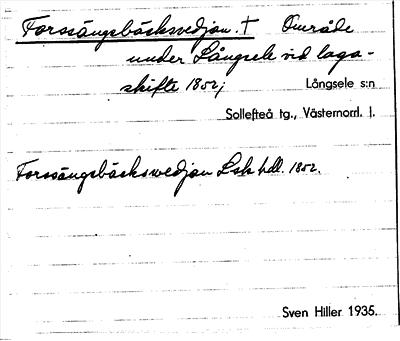 Forssängsbäcksvedjan. † Område
under Långsele vid laga-
skifte 1852;
Långsele s:n
Sollefteå tg., Västernorrl. l.
Forssängsbäckswedjan Lsk hdl. 1852.
Sven Hiller 1935.